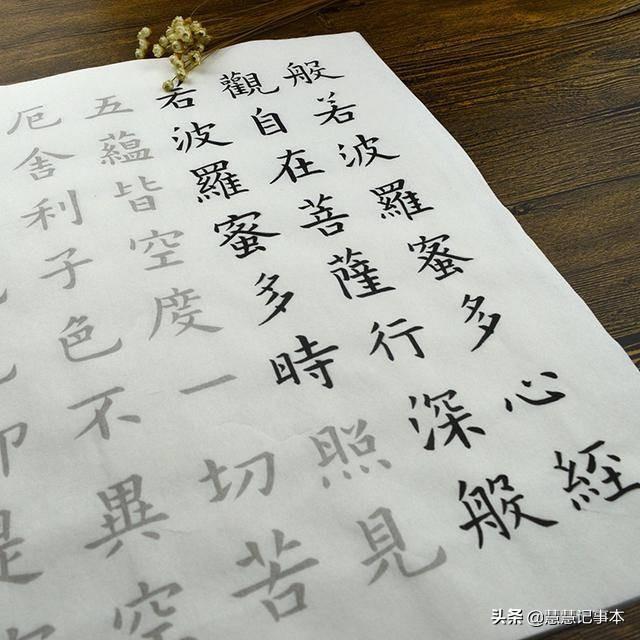 般若波羅蜜多心經
觀自在菩薩行深般
若波羅蜜多時照見
五蘊皆空度一切苦
厄舍利子色不異空
头条 @慧慧记事本